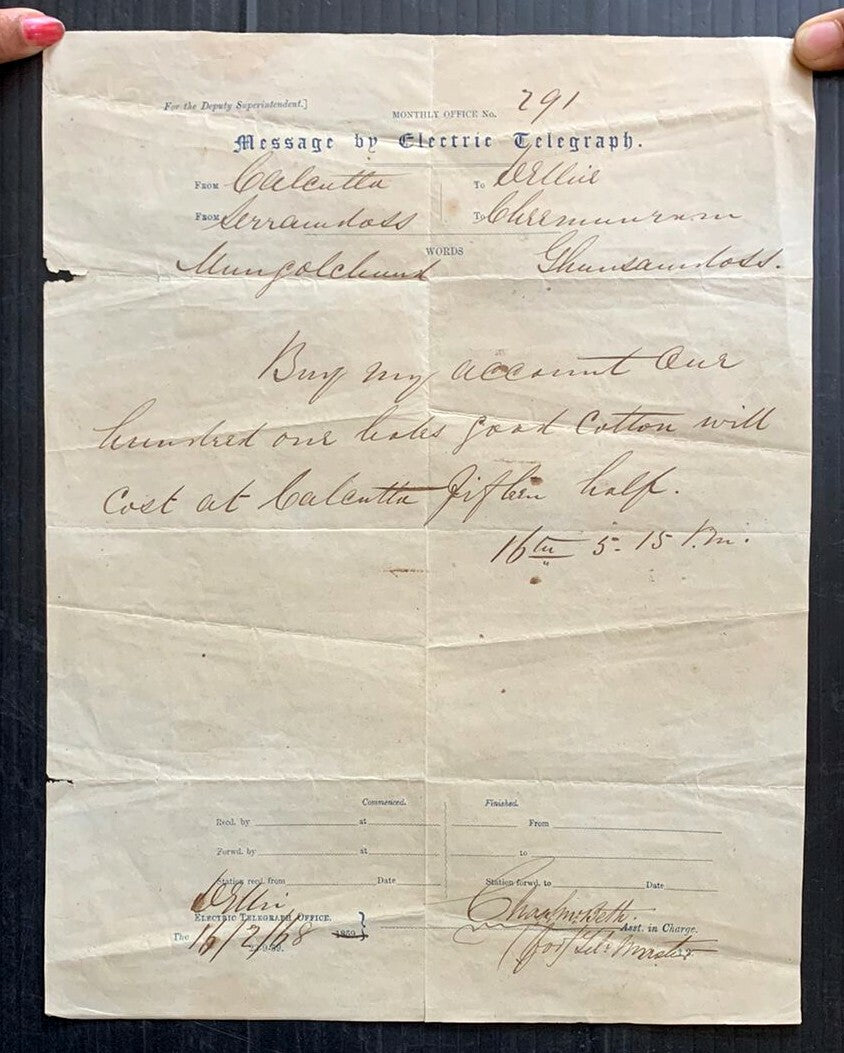 For the Deputy Superintendent.]
MONTHLY OFFICE No. 791
Message by Electric Telegraph.
FROM Calcutta To Dellie
FROM Serramdoss To
WORDS
Mungolchund Ghunsamdoss.
Buy my account One
hundred one bales good Cotton will
Cost at Calcutta fifteen half.
16th 5-15 P.m.
Commenced. Finished.
Recd. by at From
Forwd. by at to
Station recd. from Date Station forwd. to Date
Delhi
ELECTRIC TELEGRAPH OFFICE.
The 16/2/68 1859 } Asst. in Charge.
(for) Tel: Master